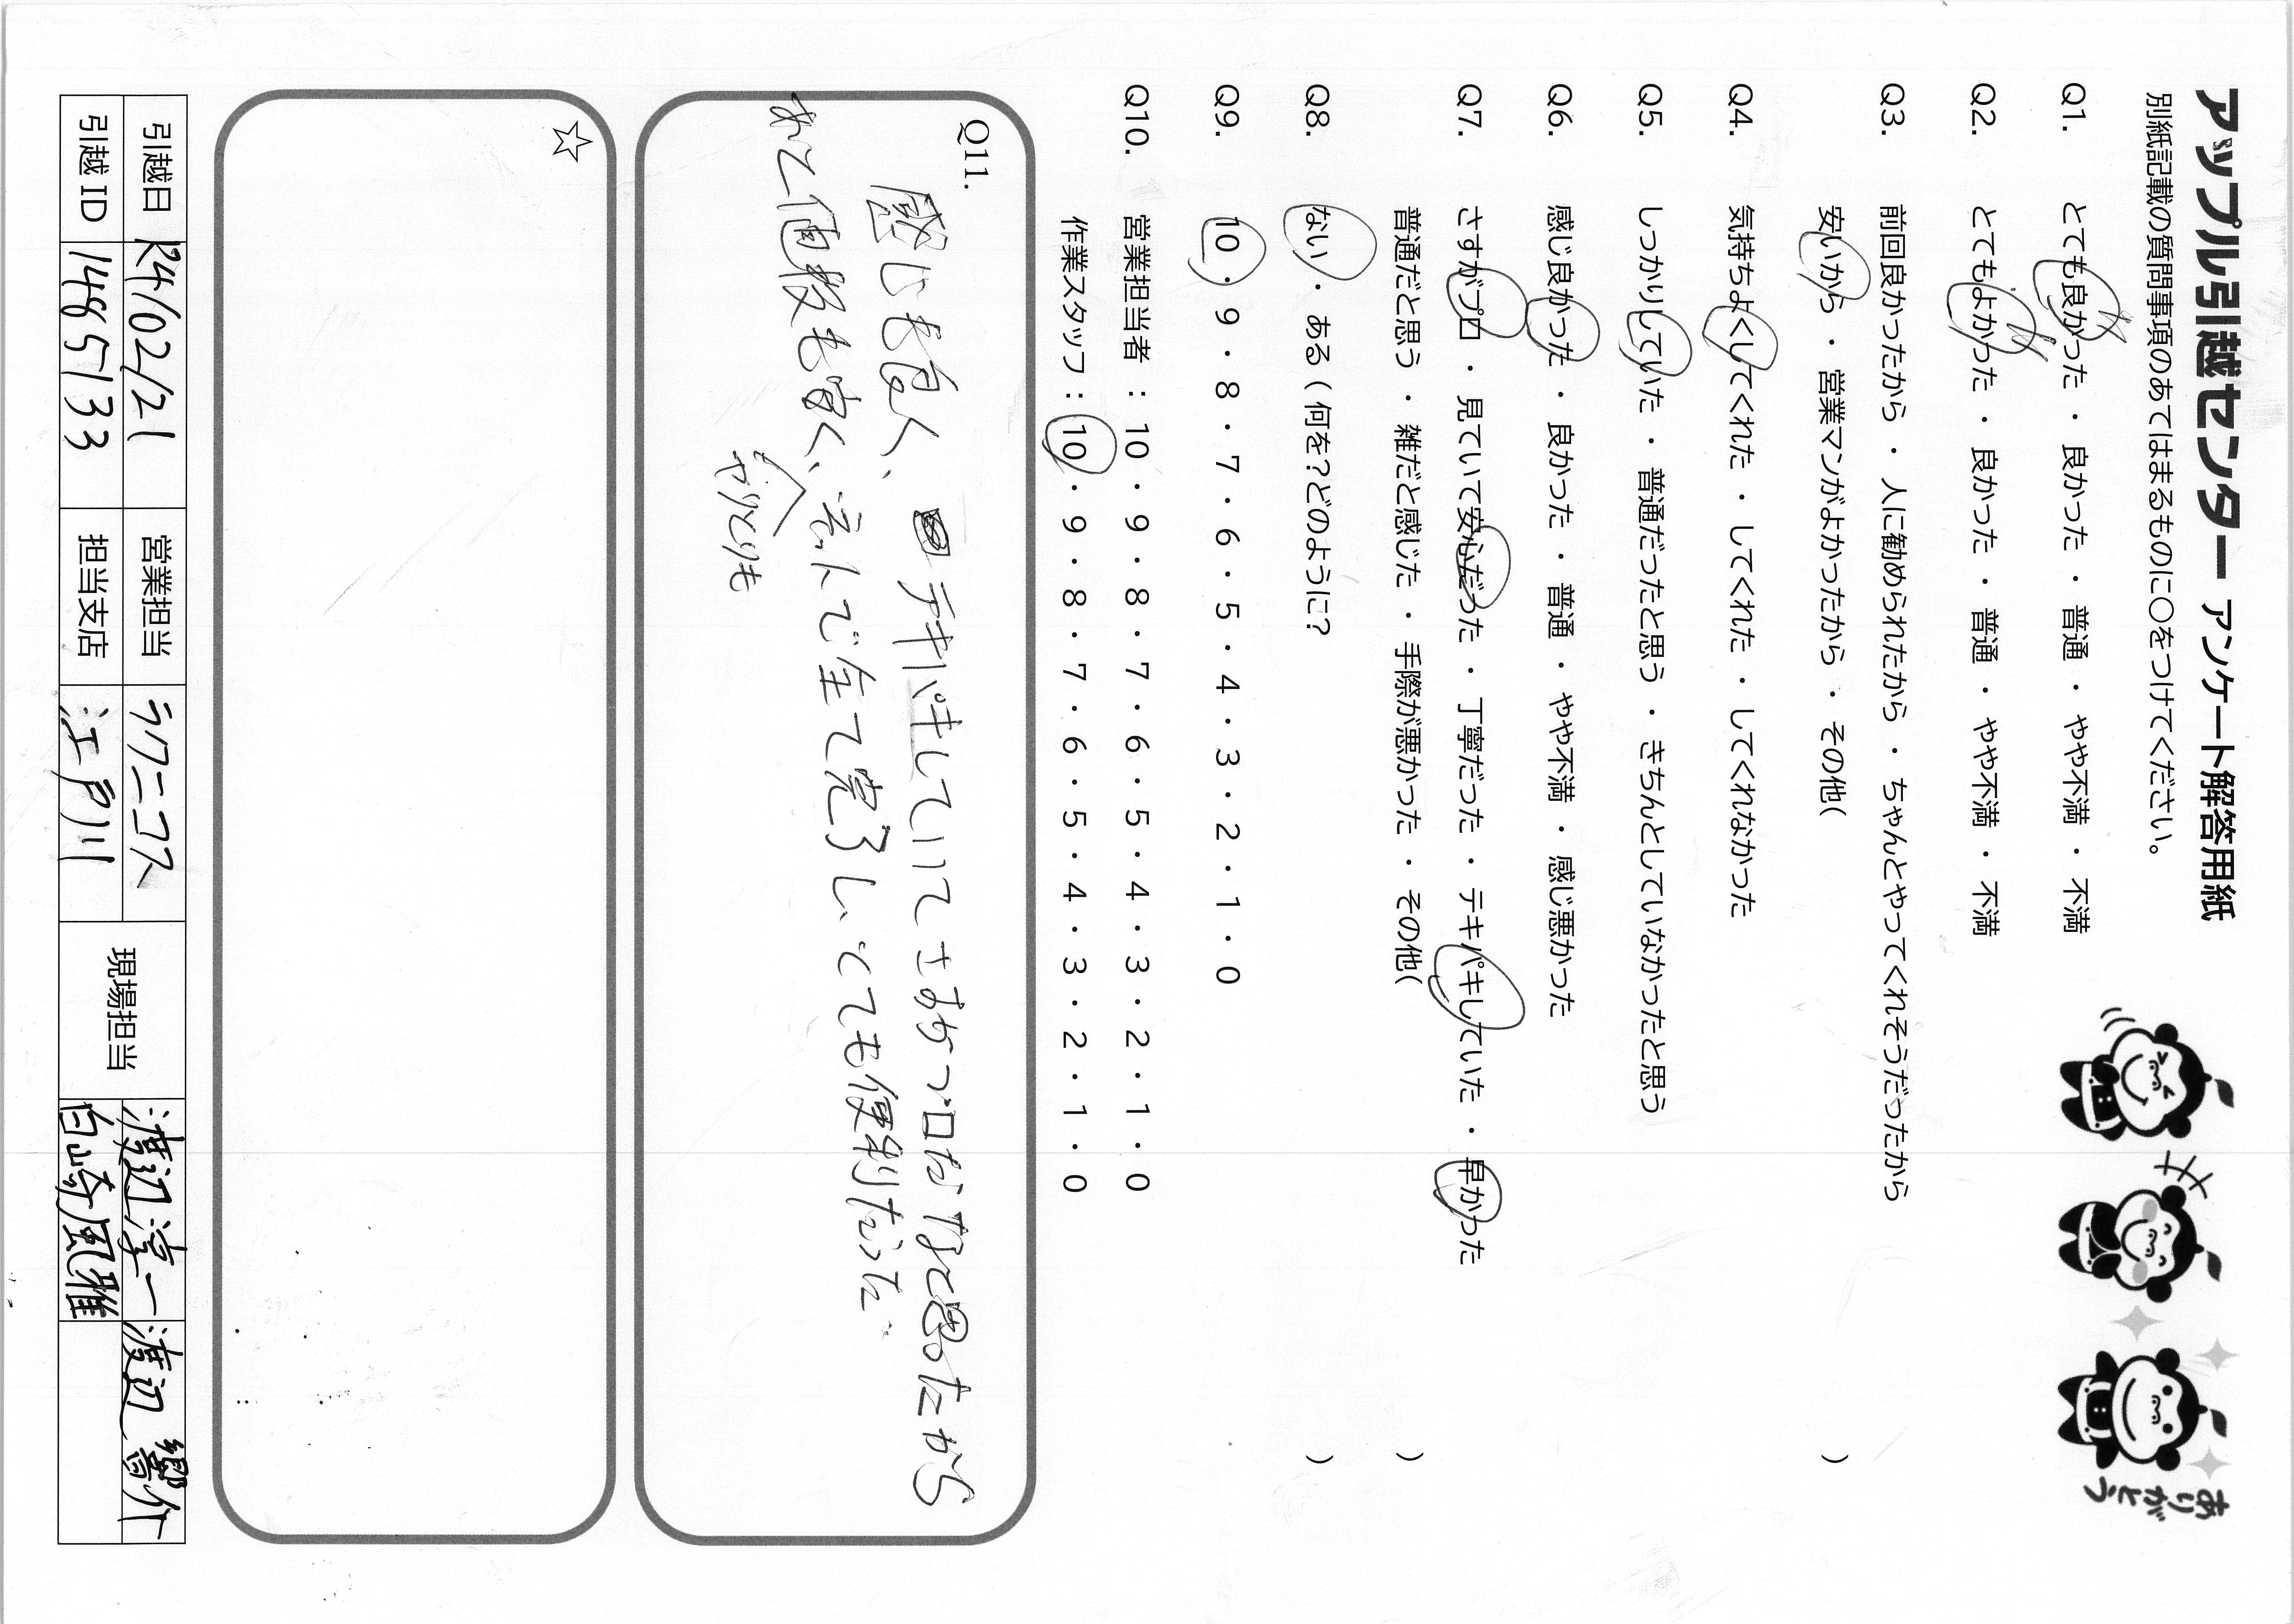 アップル引越センター アンケート解答用紙
別紙記載の質問事項のあてはまるものに〇をつけてください。
ありがとう
Q1. とても良かった ・ 良かった ・ 普通 ・ やや不満 ・ 不満
Q2. とてもよかった ・ 良かった ・ 普通 ・ やや不満 ・ 不満
Q3. 前回良かったから ・ 人に勧められたから ・ ちゃんとやってくれそうだったから
安いから ・ 営業マンがよかったから ・ その他( )
Q4. 気持ちよくしてくれた ・ してくれた ・ してくれなかった
Q5. しっかりしていた ・ 普通だったと思う ・ きちんとしていなかったと思う
Q6. 感じ良かった ・ 良かった ・ 普通 ・ やや不満 ・ 感じ悪かった
Q7. さすがプロ ・ 見ていて安心だった ・ 丁寧だった ・ テキパキしていた ・ 早かった
普通だと思う ・ 雑だと感じた ・ 手際が悪かった ・ その他( )
Q8. ない ・ ある ( 何を？どのように？ )
Q9. 10 ・ 9 ・ 8 ・ 7 ・ 6 ・ 5 ・ 4 ・ 3 ・ 2 ・ 1 ・ 0
Q10. 営業担当者 : 10 ・ 9 ・ 8 ・ 7 ・ 6 ・ 5 ・ 4 ・ 3 ・ 2 ・ 1 ・ 0
作業スタッフ : 10 ・ 9 ・ 8 ・ 7 ・ 6 ・ 5 ・ 4 ・ 3 ・ 2 ・ 1 ・ 0
Q11.
感じも良く、テキパキしていてさすがプロだなと思ったから
あと値段も安く、ネットで全て完了し、とても便利だった
やりとりも
☆
引越日 R4/02/21 営業担当 ラクニコス 現場担当 渡辺淳一 渡辺 響介
引越 ID 1465133 担当支店 江戸川 白崎風雅